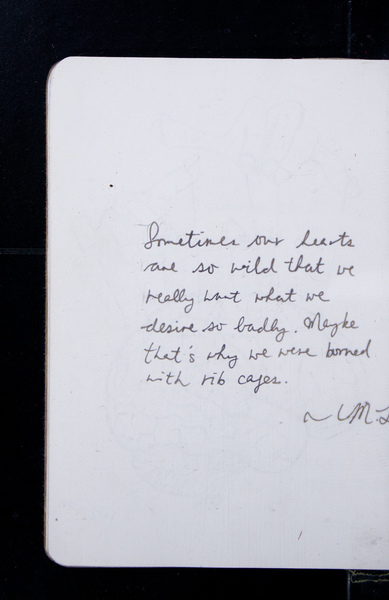 Sometimes our hearts
are so wild that we
really want what we
desire so badly. Maybe
that's why we were borned
with rib cages.
~ M.L